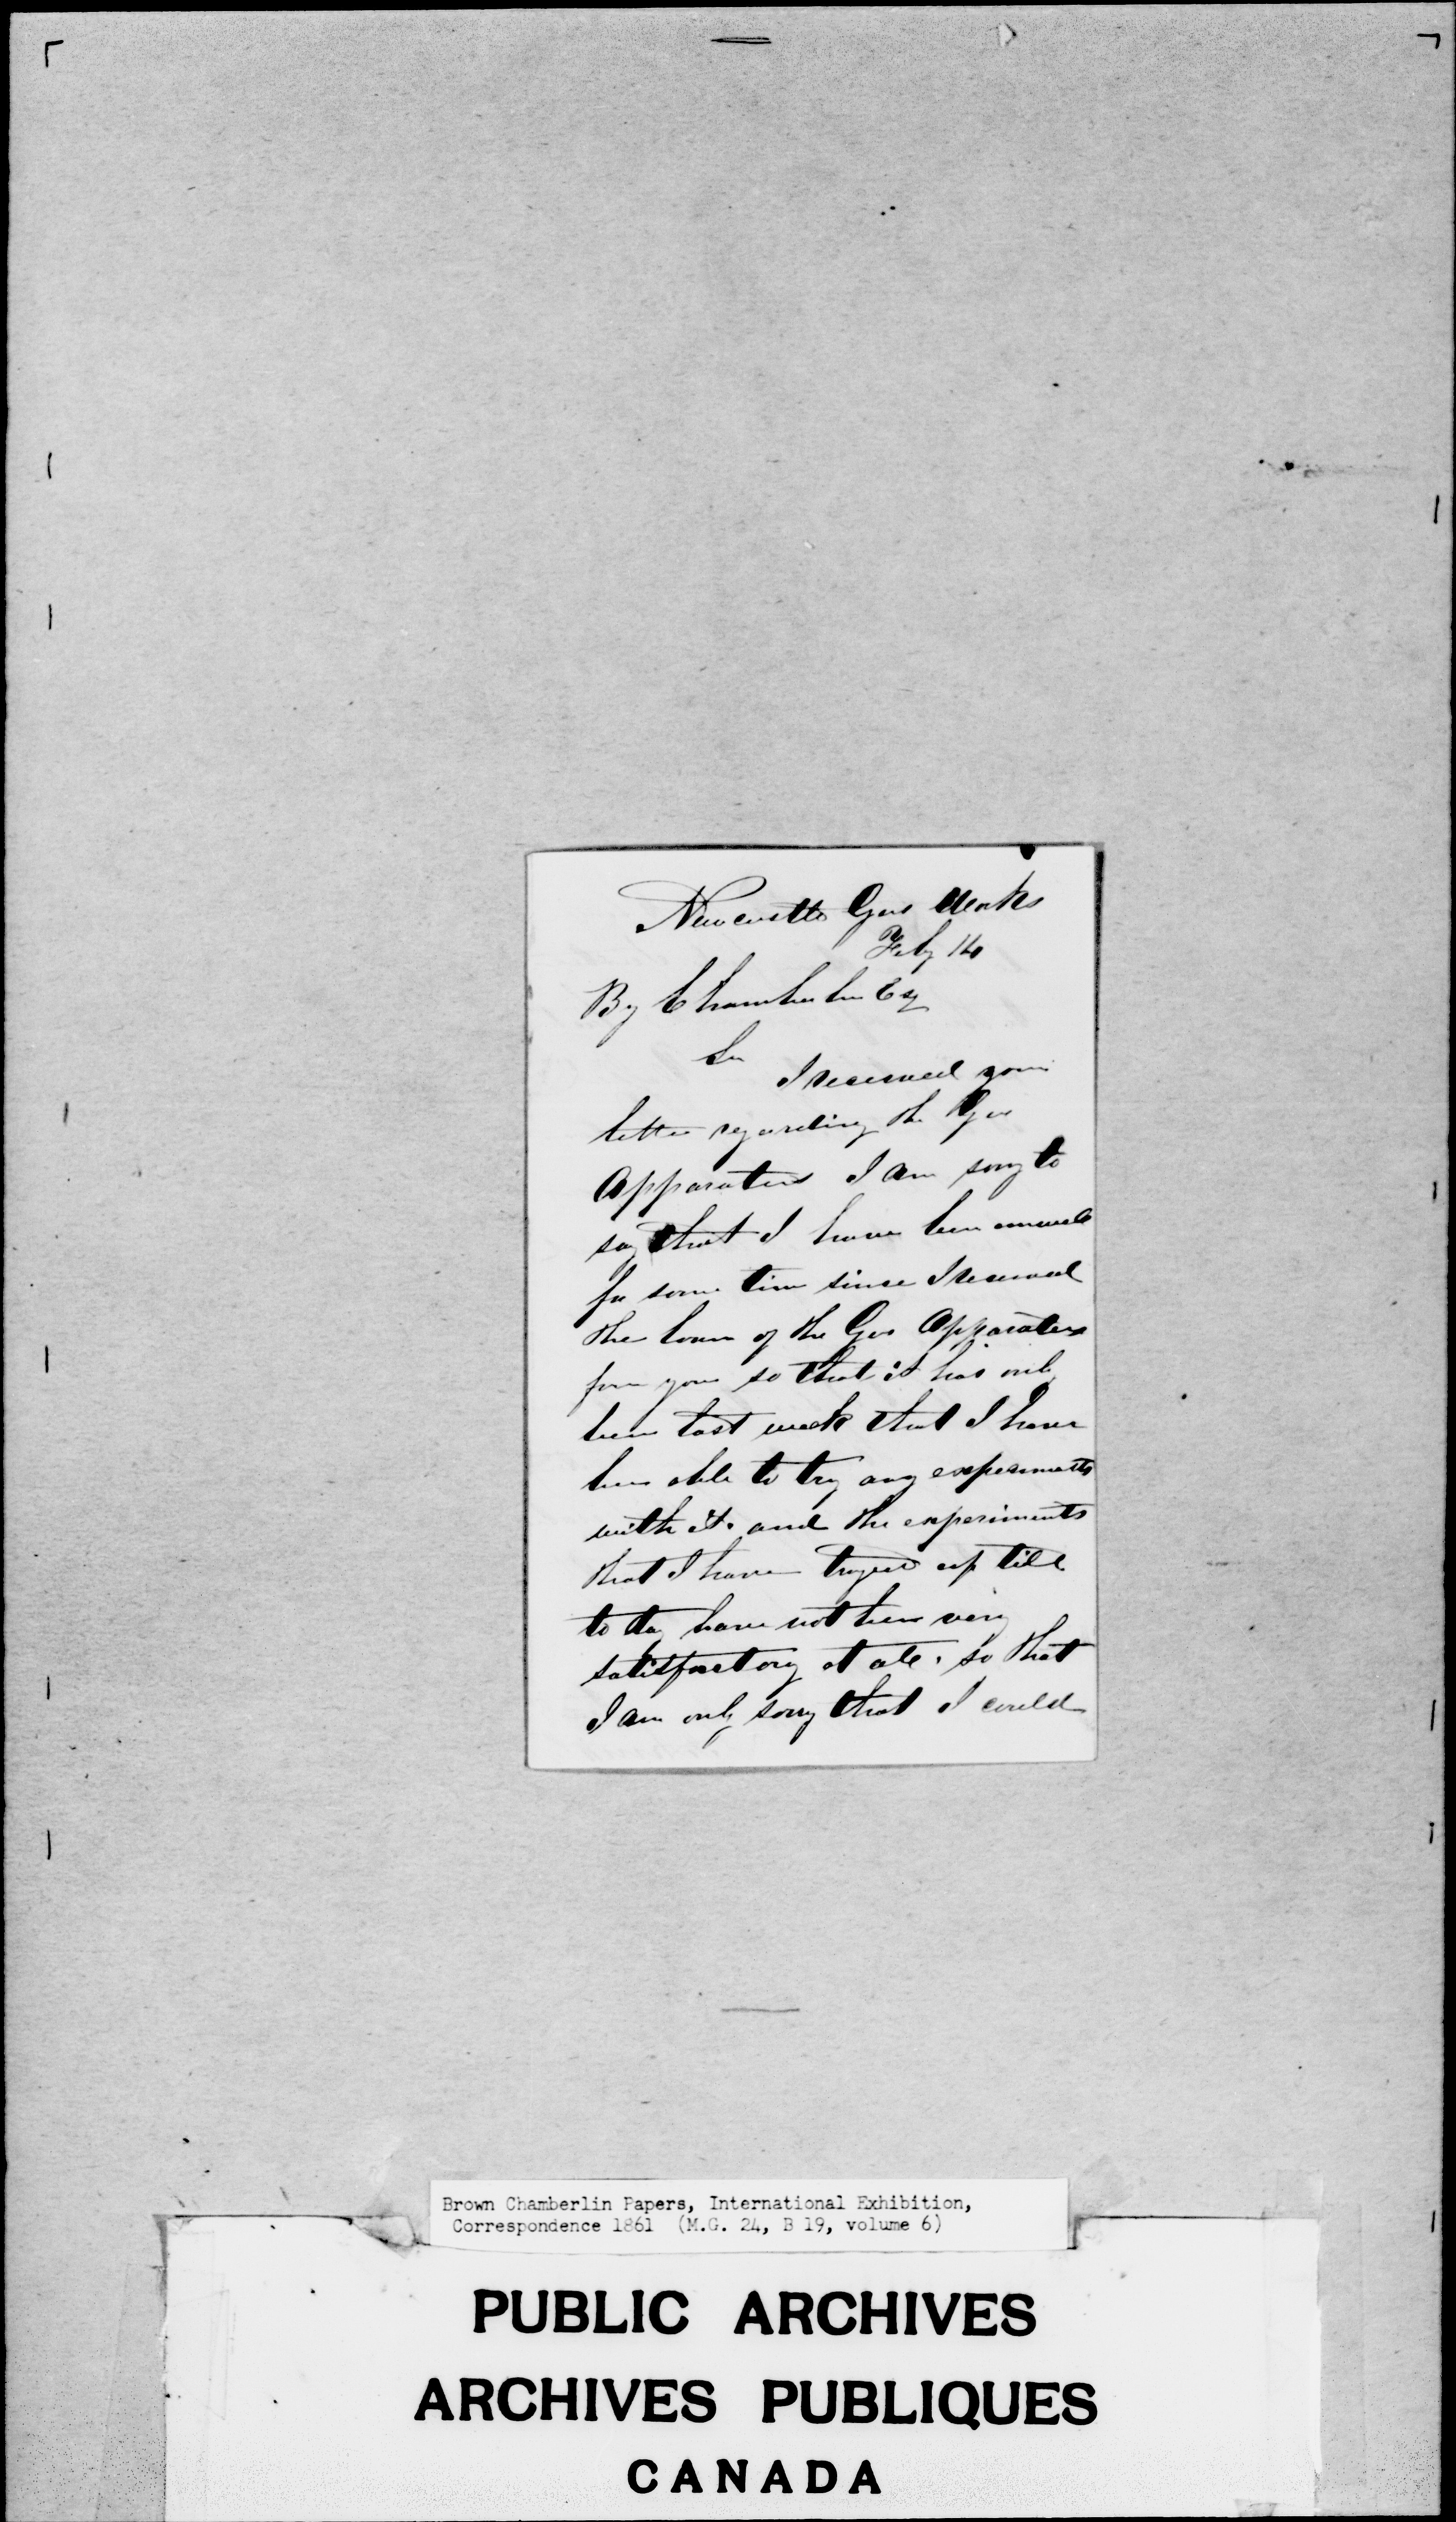 Newcastle Gas Works
Feby 14
By Chamberlin Esq
Sir
I received your
letter regarding the Gas
Apparatus I am sorry to
say that I have been unwell
for some time since I received
the loan of the Gas Apparatus
from you so that it has only
been last week that I have
been able to try any experiments
with it. and the experiments
that I have tryed up till
to day have not been very
satisfactory at all. so that
I am only sorry that I could
Brown Chamberlin Papers, International Exhibition,
Correspondence 1861 (M.G. 24, B 19, volume 6)
PUBLIC ARCHIVES
ARCHIVES PUBLIQUES
CANADA